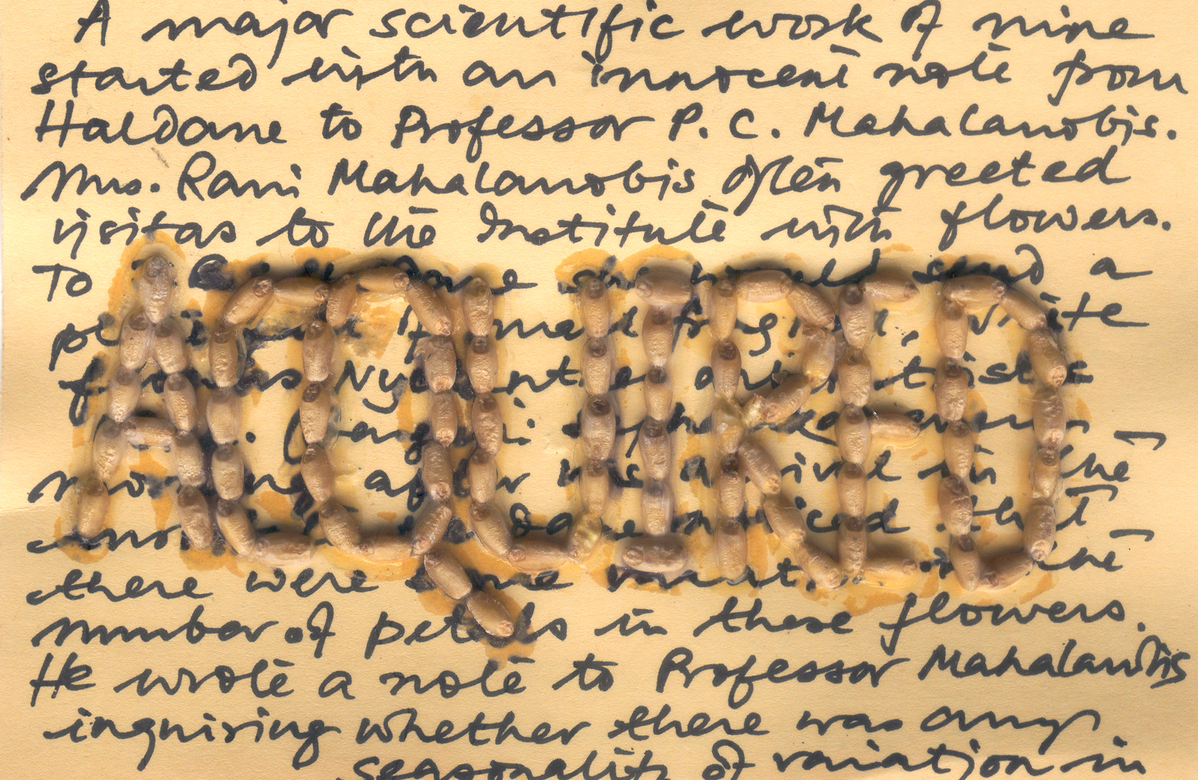 A major scientific work of mine
started with an innocent note from
Haldane to Professor P. C. Mahalanobis.
Mrs. Rani Mahalanobis often greeted
visitors to the Institute with flowers.
To would send a
ACQUIRED
white
morning after his arrival in the
noticed that
there were some in the
number of petals in these flowers.
He wrote a note to Professor Mahalanobis
inquiring whether there was any
seasonality of variation in